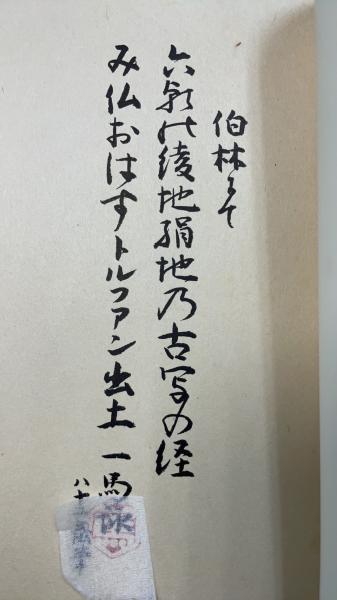 伯林にて
六朝の綾地絹地乃古写の経
み仏おはすトルファン出土 一馬
八十